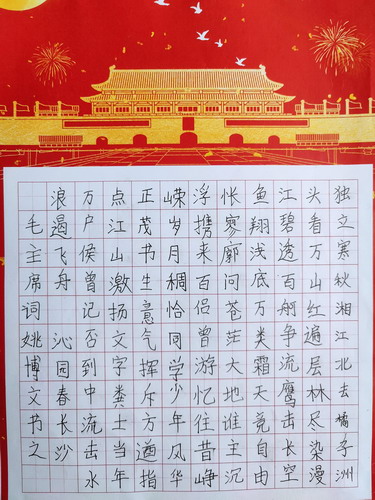 独立寒秋湘江北去橘子洲
头看万山红遍层林尽染漫
江碧透百舸争流鹰击长空
鱼翔浅底万类霜天竟自由
怅寥廓问苍茫大地谁主沉
浮携来百侣曾游忆往昔峥
嵘岁月稠恰同学少年风华
正茂书生意气挥斥方遒指
点江山激扬文字粪土当年
万户侯曾记否到中流击水
浪遏飞舟 沁园春长沙
毛主席词 姚博文书之